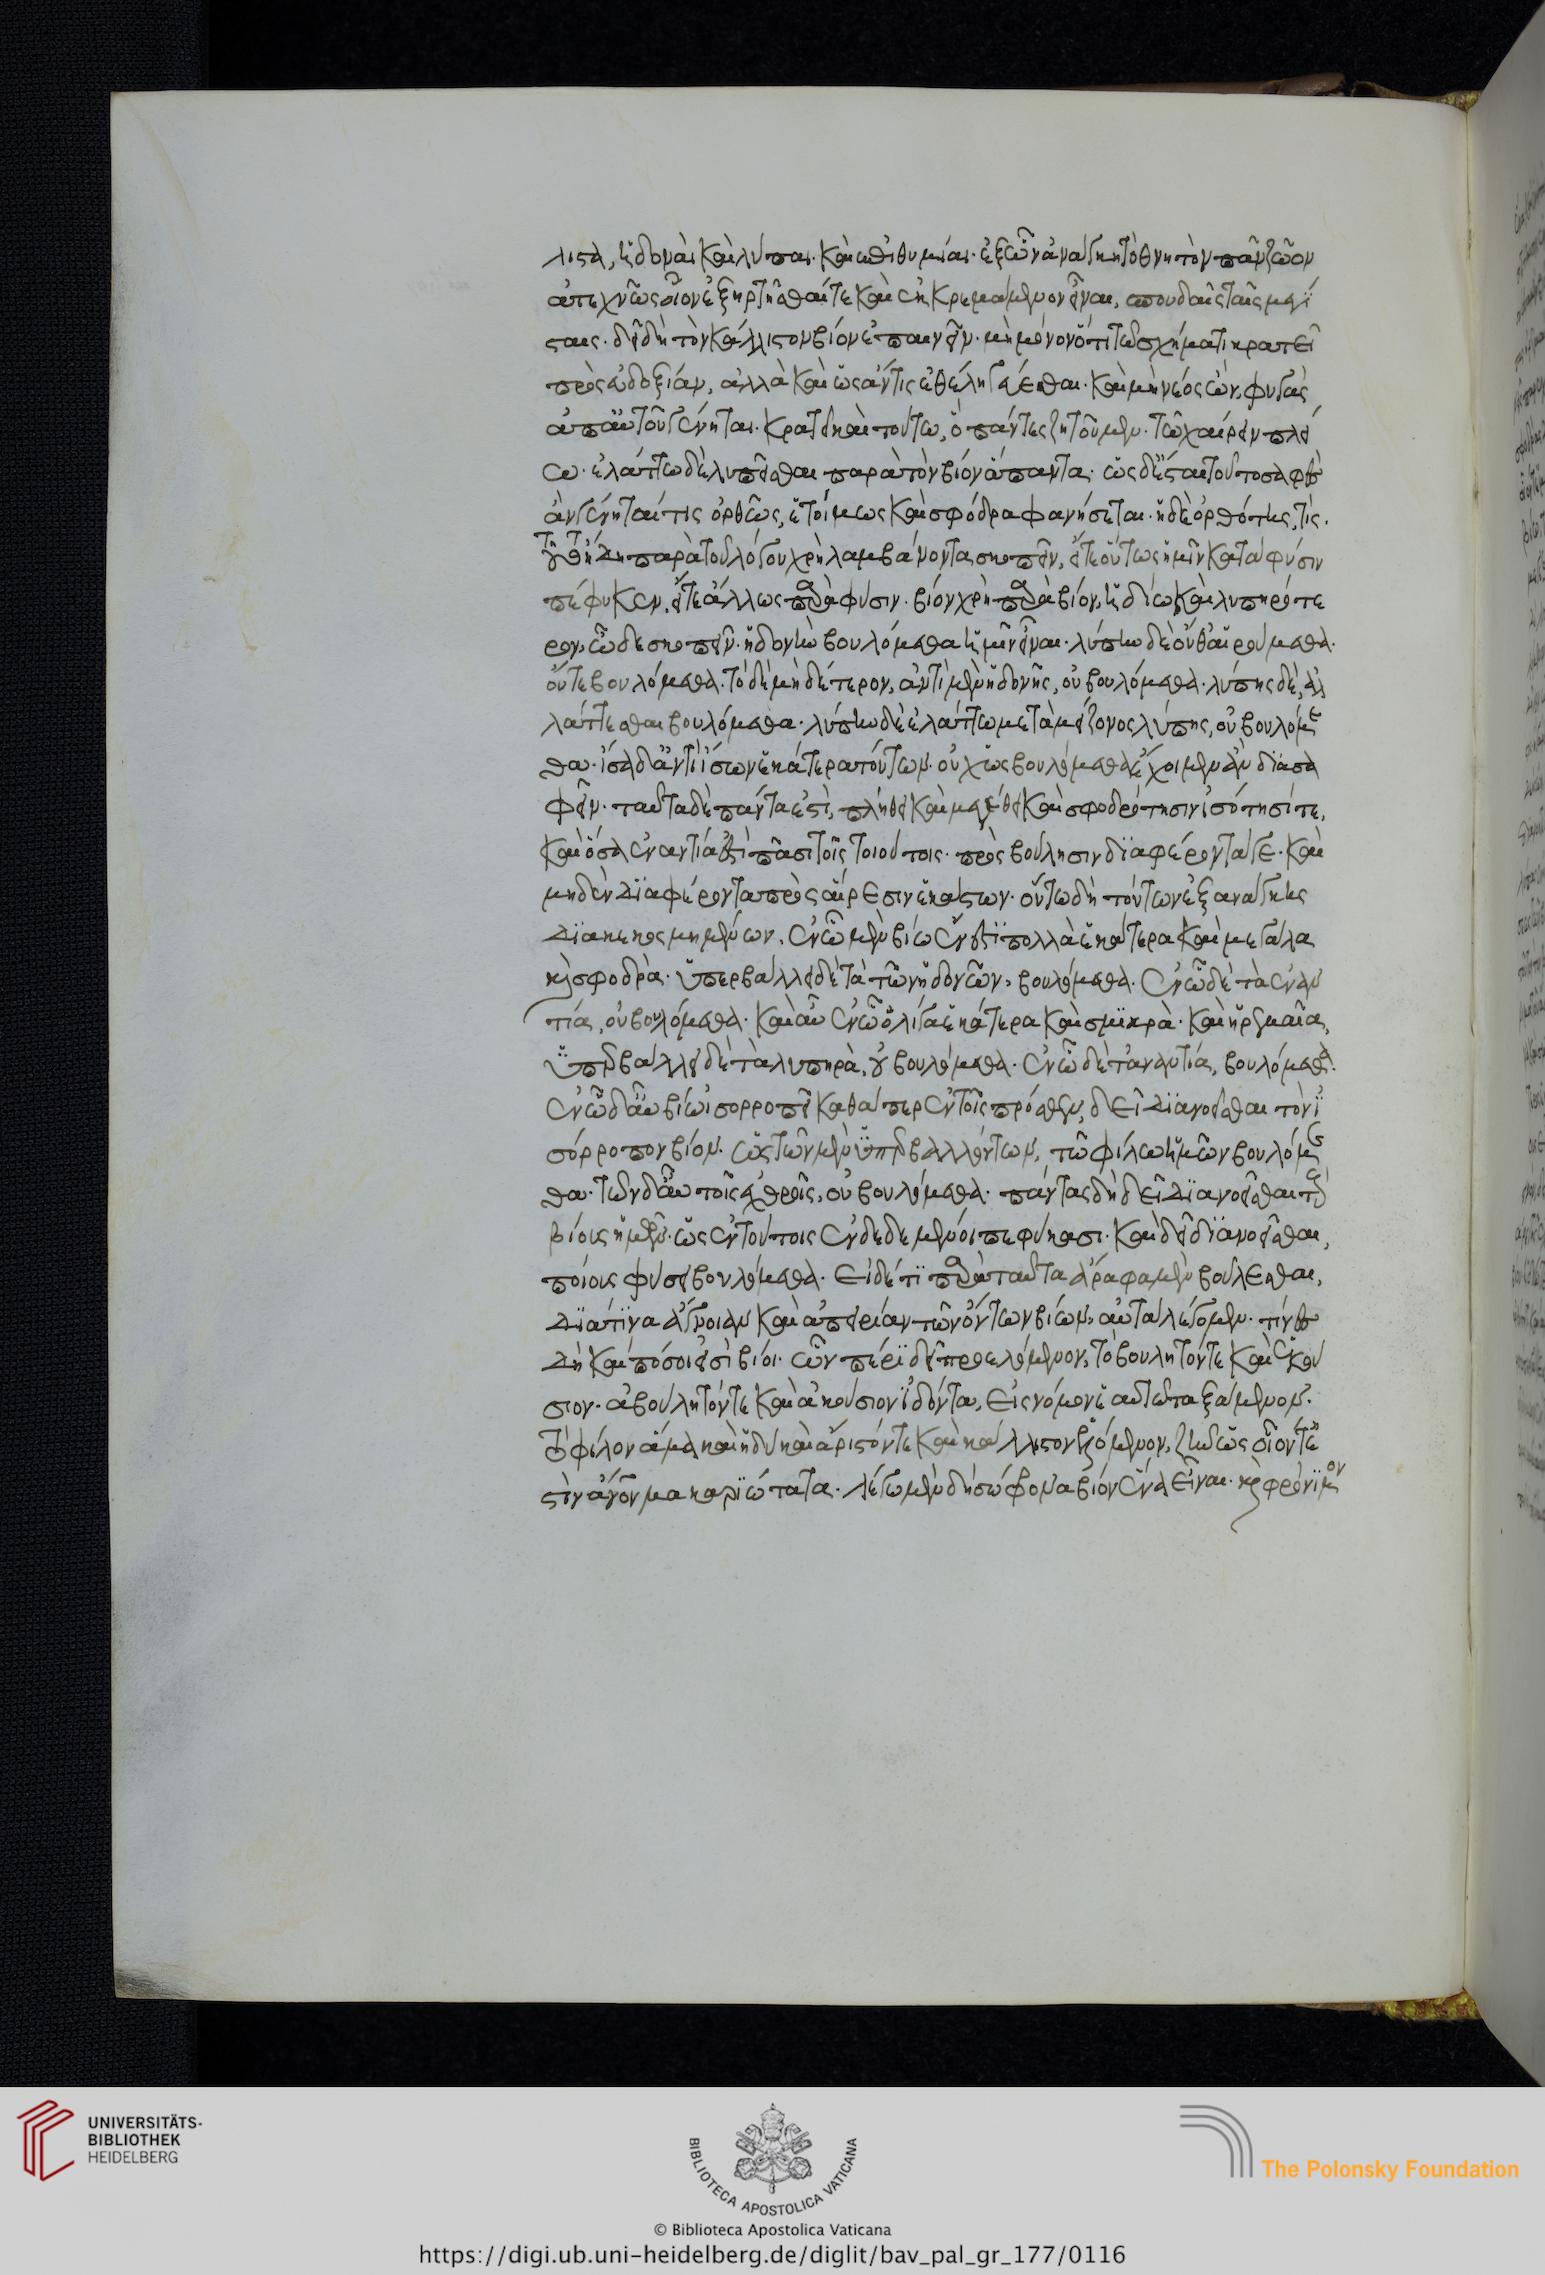 λιστα, ἡδοναὶ καὶ λύπαι· καὶ ἐπιθυμίαι· ἐξ ὧν ἀνάγκη τὸ θνητὸν πᾶν ζῶον
ἀτεχνῶς οἷον ἐξηρτῆσθαί τε καὶ ἐκκρεμάμενον εἶναι, σπουδαῖς ταῖς μεγί
σταις· δεῖ δὴ τὸν κάλλιστον βίον ἐπαινεῖν· μὴ μόνον ὅτι τῶ σχήματι κρατεῖ
πρὸς εὐδοξίαν, ἀλλὰ καὶ ὡς ἄν τις ἐθέλη γεύεσθαι· καὶ μὴ νέος ὢν, φυγὰς
ἀπ' αὐτοῦ γένηται· κρατεῖ καὶ τούτω, ὃ πάντες ζητοῦμεν· τῶ χαίρειν πλεί
ω· ἐλάττω δὲ λυπεῖσθαι παρὰ τὸν βίον ἅπαντα· ὡς δὲ ἔσται τοῦτο σαφὲς
ἂν γεύηταί τις ὀρθῶς, ἑτοίμως καὶ σφόδρα φανήσεται· ἡ δὲ ὀρθότης, τίς·
ἤδη παρὰ τοῦ λόγου χρὴ λαμβάνοντα σκοπεῖν, εἴτε οὕτως ἡμῖν κατὰ φύσιν
πέφυκεν, εἴτε ἄλλως παρὰ φύσιν· βίον χρὴ παρὰ βίον, ἡδίω καὶ λυπηρότε
ρον, ὧδε σκοπεῖν· ἡδονὴν βουλόμεθα ἡμῖν εἶναι· λύπην δὲ οὔθ' αἱρούμεθα·
οὔτε βουλόμεθα· τὸ δὲ μηδέτερον, ἀντὶ μὲν ἡδονῆς, οὐ βουλόμεθα· λύπης δὲ, ἀλ
λάττεσθαι βουλόμεθα· λύπην δὲ ἐλάττω μετὰ μείζονος λύπης, οὐ βουλόμε
θα· ἴσα δ' ἀντὶ ἴσων ἑκάτερα τούτων· οὐχ ὡς βουλόμεθα ἔχοιμεν ἂν διασα
φεῖν· ταῦτα δὲ πάντα ἐστὶ, πλήθει καὶ μεγέθει καὶ σφοδρότησιν ἰσότησί τε,
καὶ ὅσα ἐναντία ἐστὶ πᾶσι τοῖς τοιούτοις· πρὸς βούλησιν διαφέροντά τε· καὶ
μηδὲν διαφέροντα πρὸς αἵρεσιν ἑκάστων· οὕτω δὴ τούτων ἐξ ἀνάγκης
διακεκοσμημένων, ἐν ᾧ μὲν βίω ἔνεστι πολλὰ ἑκάτερα καὶ μεγάλα
καὶ σφοδρὰ· ὑπερβάλλει δὲ τὰ τῶν ἡδονῶν, βουλόμεθα· ἐν ᾧ δὲ τὰ ἐναν
τία, οὐ βουλόμεθα· καὶ αὖ ἐν ᾧ ὀλίγα ἑκάτερα καὶ σμικρὰ· καὶ ἠρεμαῖα,
ὑπερβάλλει δὲ τὰ λυπηρὰ, οὐ βουλόμεθα· ἐν ᾧ δὲ τἀναντία, βουλόμεθα·
ἐν ᾧ δ' αὖ βίω ἰσορροπεῖ καθάπερ ἐν τοῖς πρόσθεν, δεῖ διανοεῖσθαι τὸν ἰ
σόρροπον βίον· ὡς τῶν μὲν ὑπερβαλλόντων, τῶ φίλω ἡμῶν βουλόμε
θα· τῶν δ' αὖ τοῖς ἐχθροῖς, οὐ βουλόμεθα· πάντας δὴ δεῖ διανοεῖσθαι τοὺς
βίους ἡμῶν· ὡς ἐν τούτοις ἐνδεδεμένοι πεφύκασι· καὶ δεῖ διανοεῖσθαι,
ποίους φύσει βουλόμεθα· εἰ δέ τι παρὰ ταῦτα ἄρα φαμὲν βούλεσθαι,
διά τινα ἄγνοιαν καὶ ἀπειρίαν τῶν ὄντων βίων, αὐτὰ λέγομεν· τίνες
δὴ καὶ πόσοι εἰσὶ βίοι· ὧν πέρι δεῖ προελόμενον, τὸ βουλητόν τε καὶ ἑκού
σιον· ἀβούλητόν τε καὶ ἀκούσιον ἰδόντα, εἰς νόμον ἑαυτῶ ταξάμενον·
τὸ φίλον ἅμα καὶ ἡδὺ καὶ ἄριστόν τε καὶ κάλλιστον ἑλόμενον, ζῆν ὡς οἷόν τέ
στιν ἄνθρωπον μακαριώτατα· λέγωμεν δὴ σώφρονα βίον ἕνα εἶναι· καὶ φρόνιμον
UNIVERSITÄTS-
BIBLIOTHEK
HEIDELBERG
BIBLIOTECA APOSTOLICA VATICANA
The Polonsky Foundation
© Biblioteca Apostolica Vaticana
https://digi.ub.uni-heidelberg.de/diglit/bav_pal_gr_177/0116